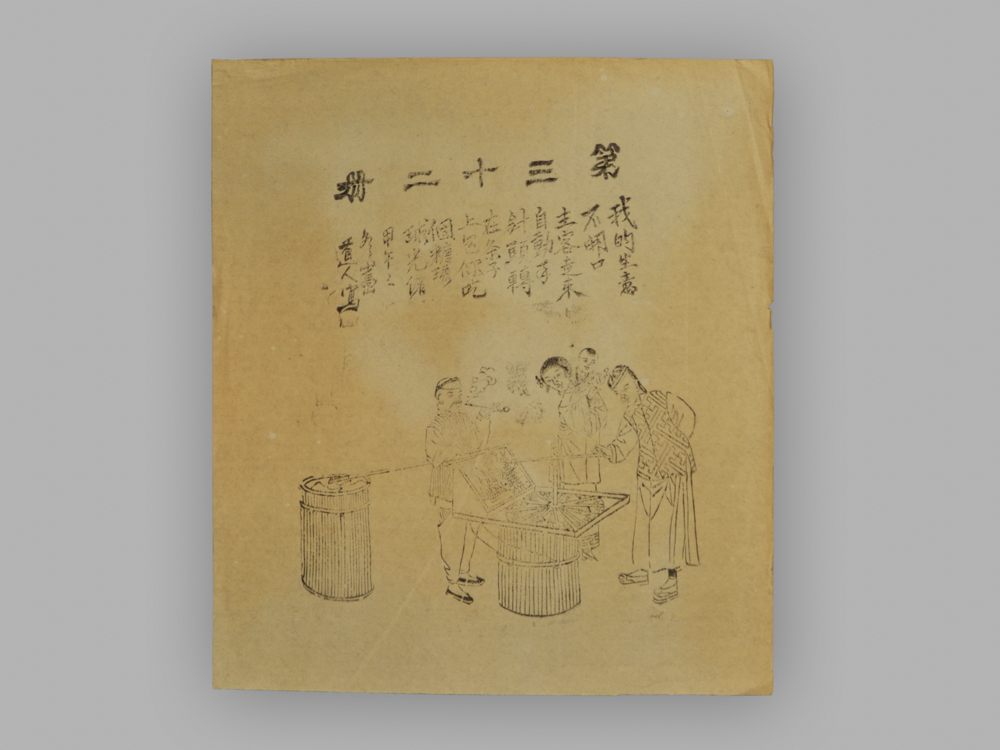 第三十二冊
我的生意
不開口
主客走來
自動手
針頭轉
在条子
上包你吃
個糖球
光
甲午之
冬
道人寫